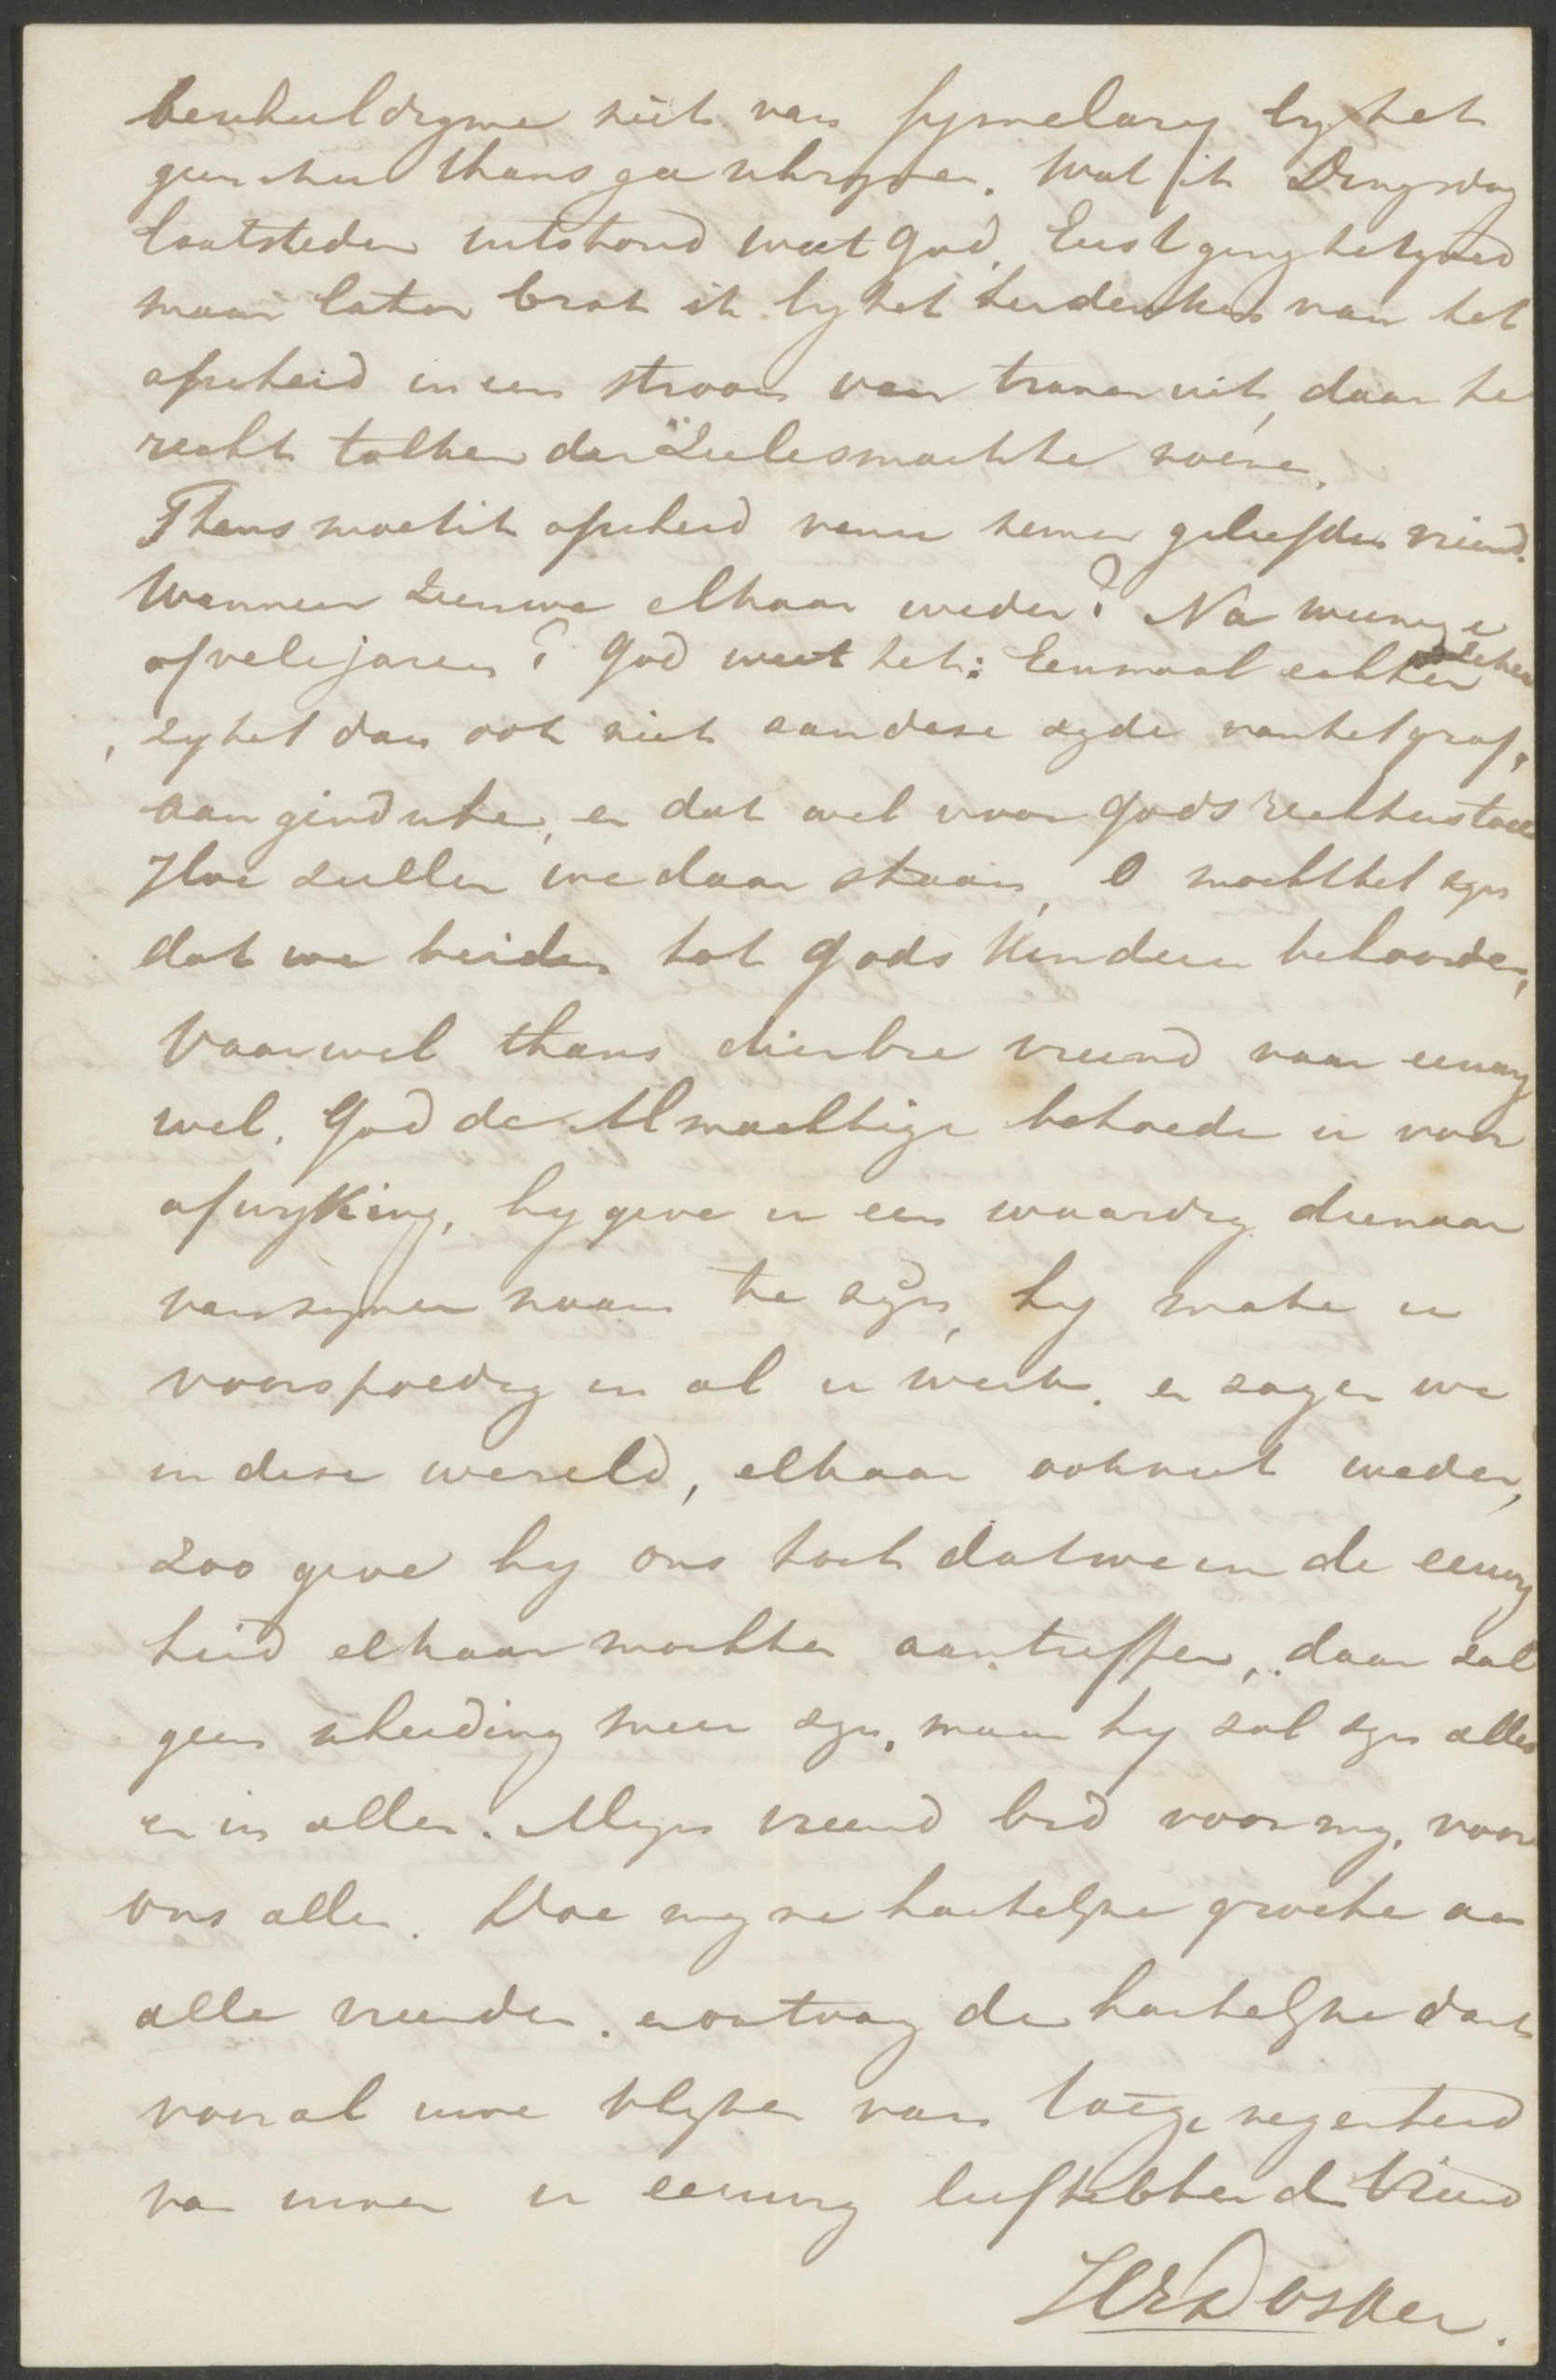 beschuldig me niet van fymelary by het
geen ik u thans ga schryven. Wat ik Dingsdag
laatstleden uitstond weet God. Eerst ging het goed
maar later brak ik by het herdenken van het
afscheid in een stroom van tranen uit, daar te
recht tolken der Zielesmarthe
Thans moet ik afscheid van u nemen geliefden vriend.
Wanneer zien we elkaar weder? Na weenige
of vele jaren? God weet het: Eenmaal echter zeker
, zy het dan ook niet aan deze zyde van het graf,
aan gindsche, en dat wel voor Gods rechterstoel
Hoe zullen we daar staan, O mocht het zyn
dat we beiden tot Gods Kinderen behoorden,
Vaarwel thans dierbre vriend vaar eeuwig
wel. God de Almachtige behoede u voor
afwyking, hy geve u een waardig dienaar
van zynen naam te zyn, hy make u
voorspoedig in al u werk. en zagen we
in deze wereld, elkaar ook niet weder,
zoo geve hy ons toch dat we in de eeuwig
heid elkaar mochten aantreffen, daar zal
geen scheiding meer zyn, maar hy zal zyn alles
en in allen. Myn vriend bid voor my, voor
ons allen. Doe myne hartelyke groete aan
alle vrienden. en ontvang den hartelyken dank
voor al uwe blyken van toegenegenheid
van uwen u eeuwig liefhebbenden Vriend
H E Dosker.